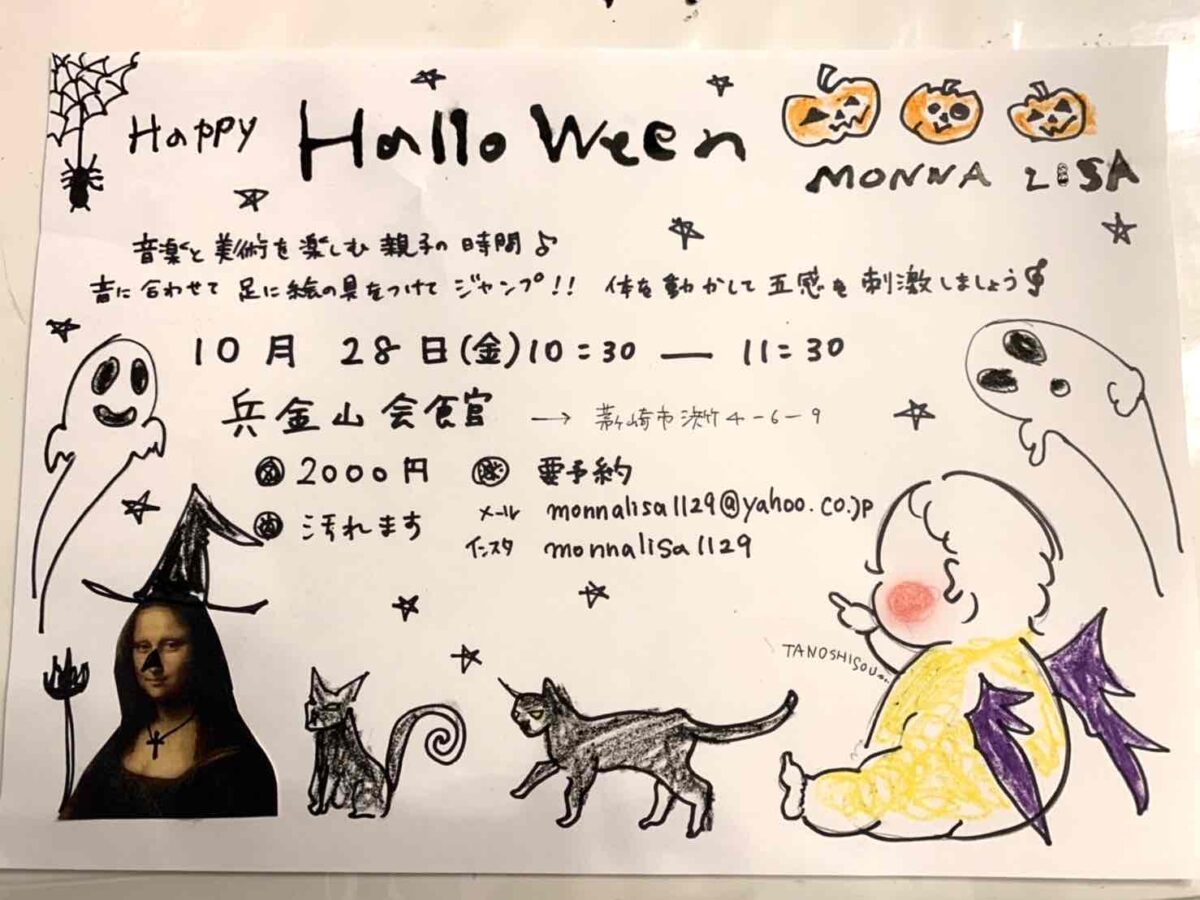 Happy Hallo Ween
MONNA LISA
音楽と美術を楽しむ 親子の時間♪
音に合わせて 足に絵の具をつけて ジャンプ!! 体を動かして 五感を 刺激しましょう
10月 28日(金)10:30 — 11:30
兵金山 会食館 → 茅ヶ崎市浜竹4-6-9
2000円 要予約
汚れます メール monnalisa1129@yahoo.co.jp
インスタ monnalisa1129
TANOSHISOU...